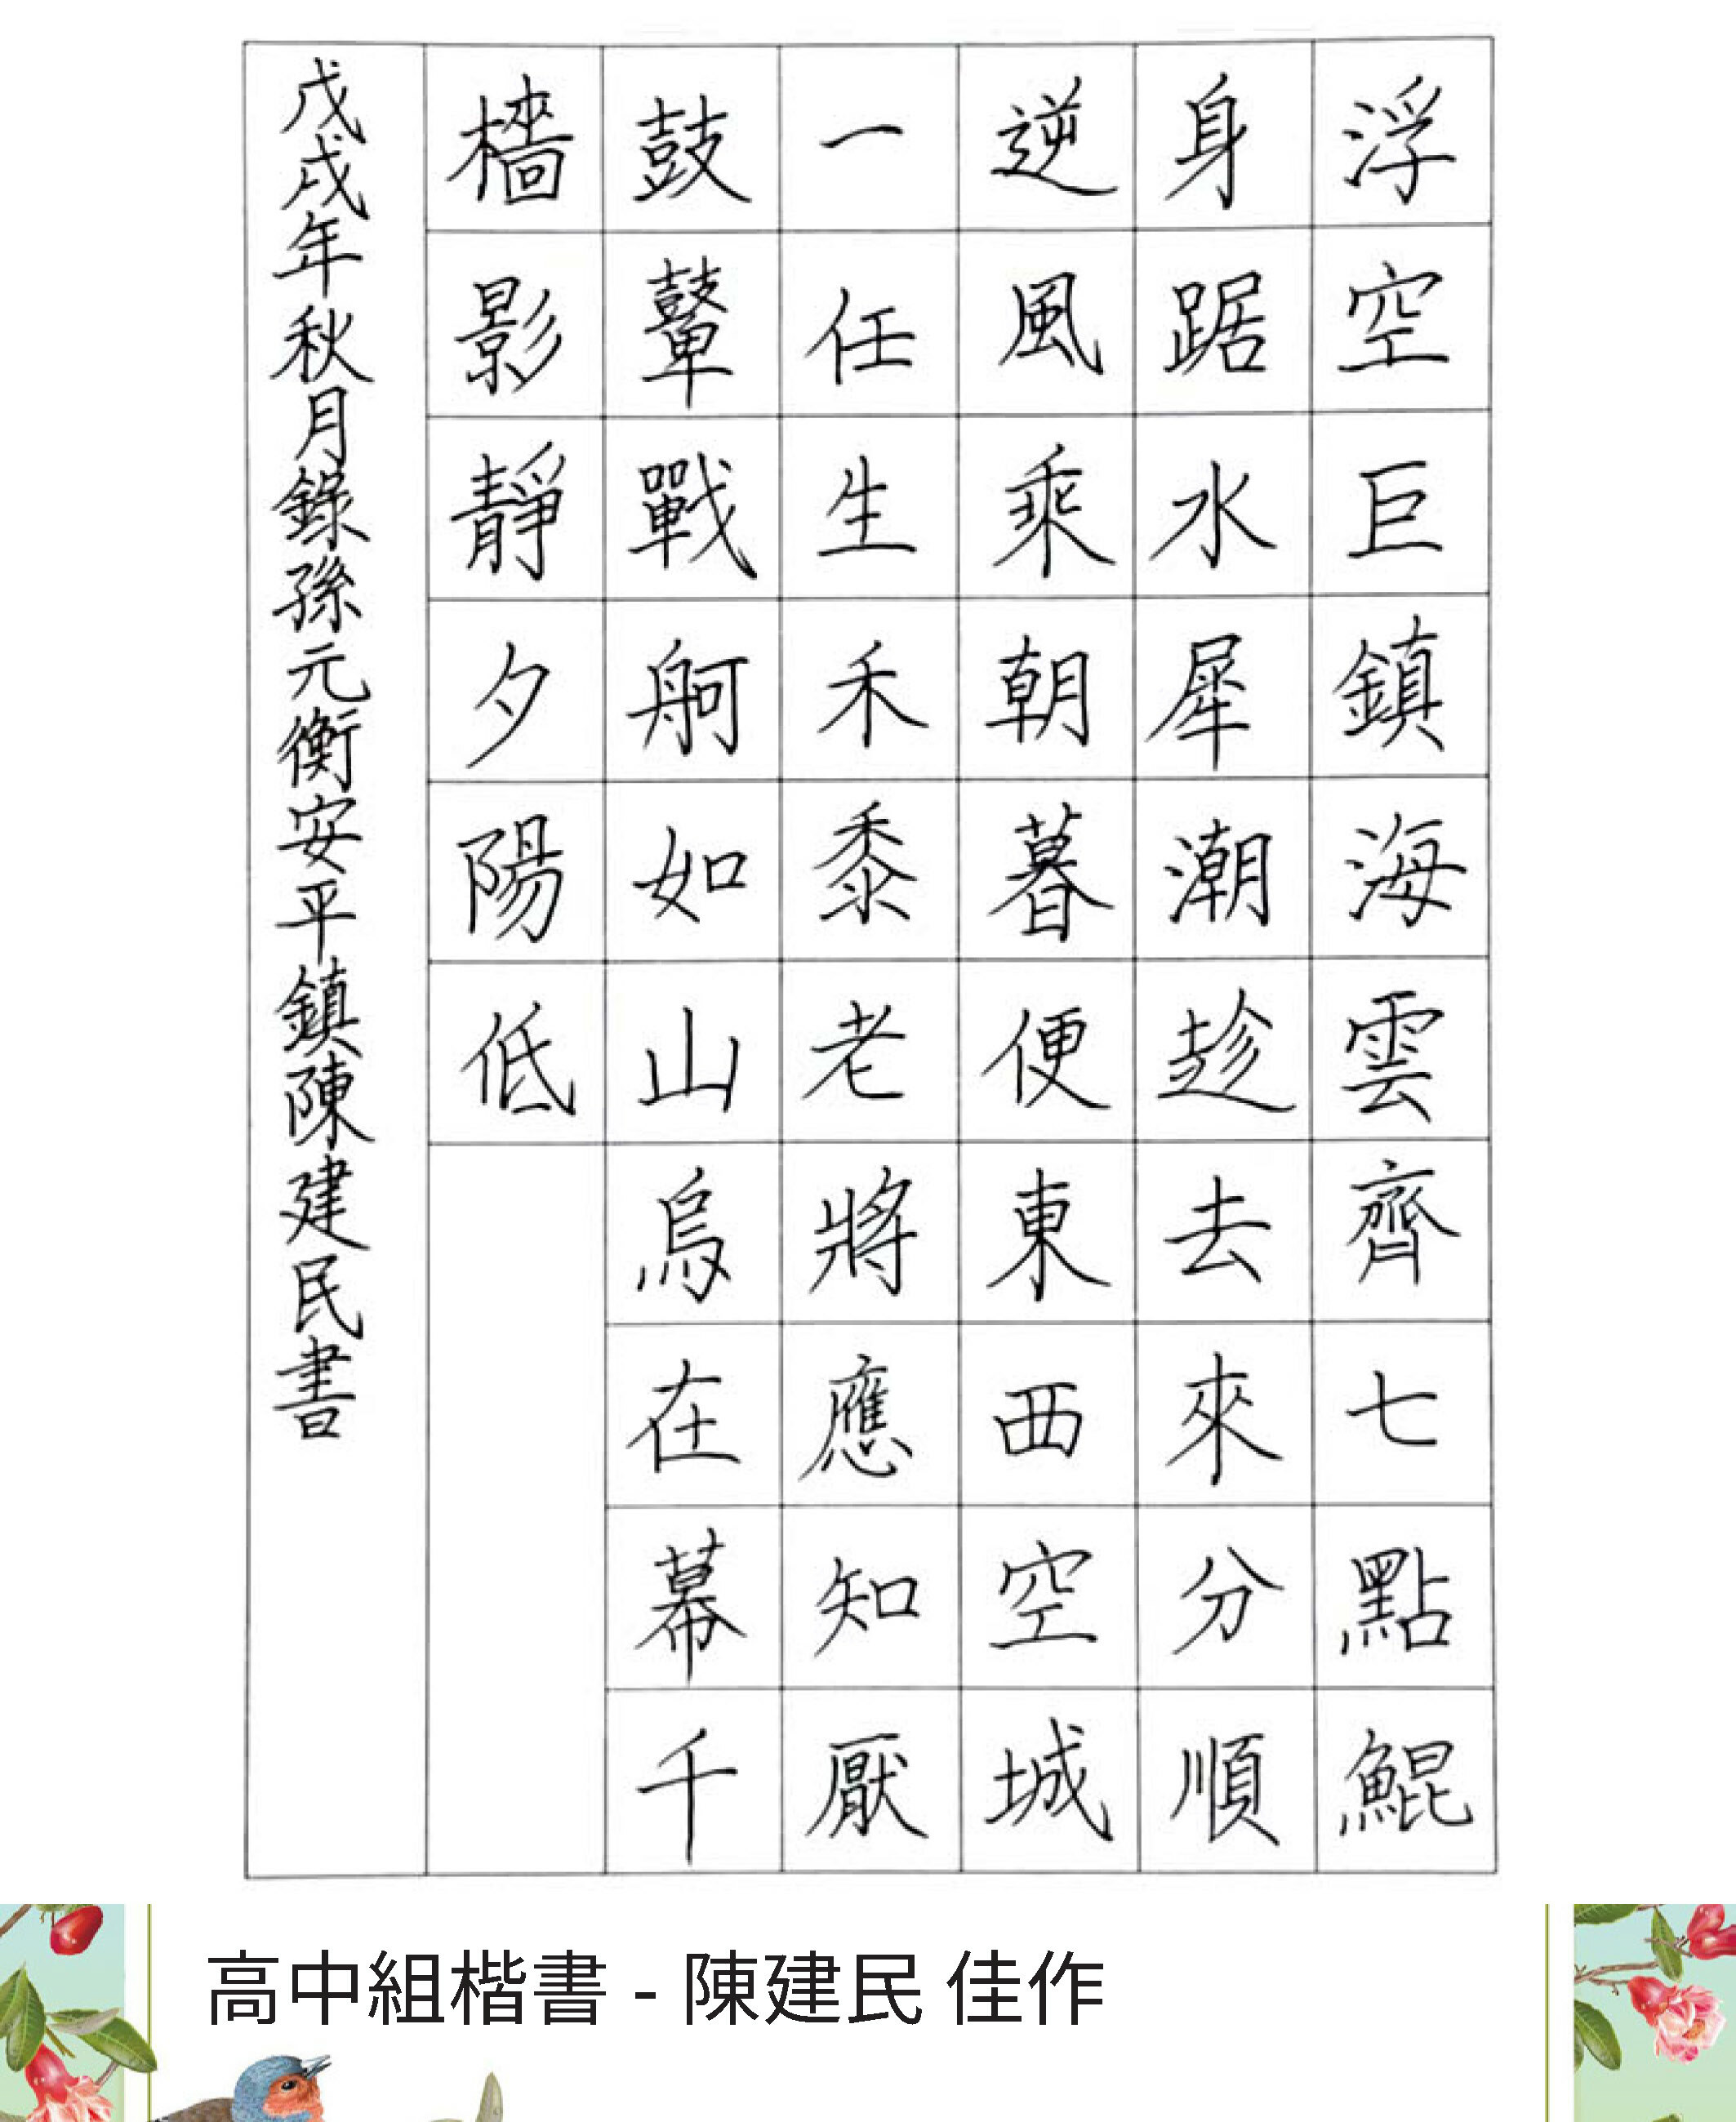 浮空巨鎮海雲齊七點鯤
身踞水犀潮趁去來分順
逆風乘朝暮便東西空城
一任生禾黍老將應知厭
鼓鼙戰舸如山烏在幕千
檣影靜夕陽低
戊戌年秋月錄孫元衡安平鎮陳建民書
高中組楷書 - 陳建民 佳作